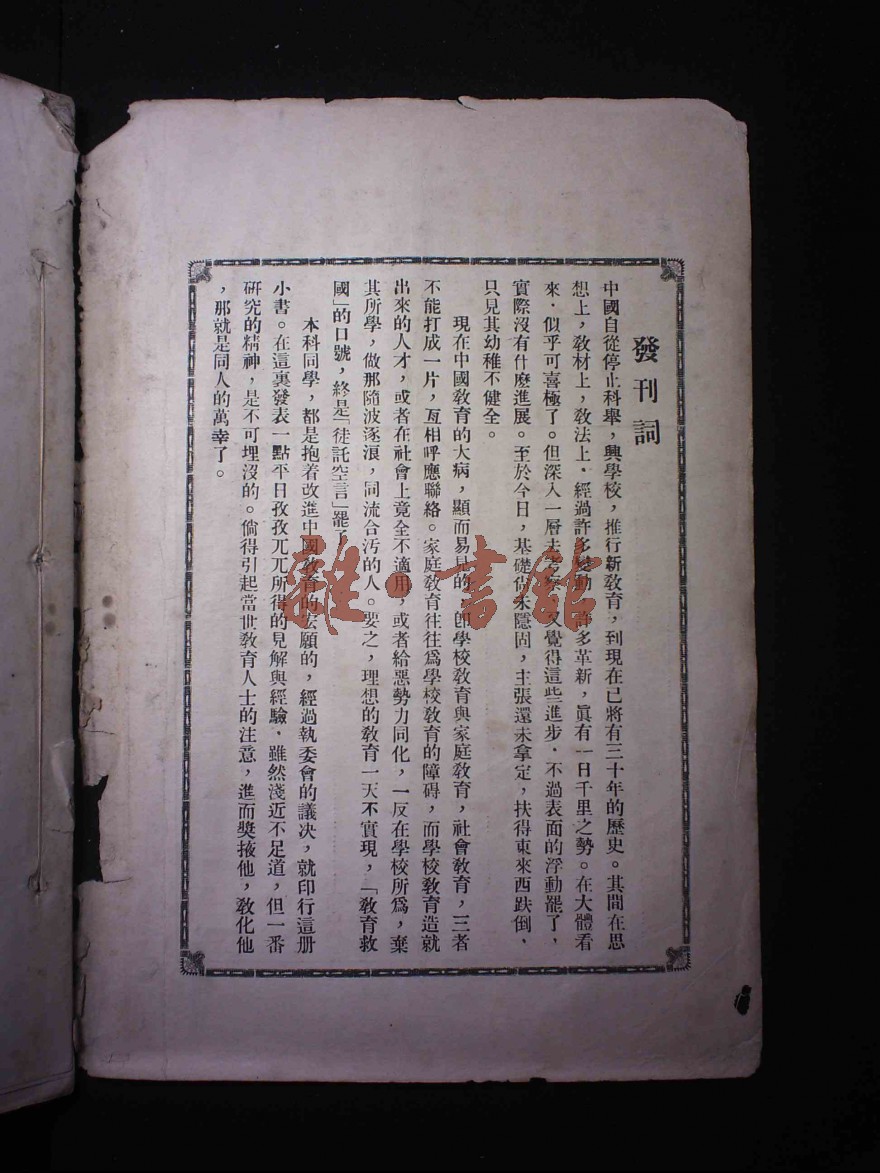 發刊詞
中國自從停止科舉，興學校，推行新敎育，到現在已將有三十年的歷史。其間在思
想上，敎材上，敎法上，經過許多變動，許多革新，眞有一日千里之勢。在大體看
來，似乎可喜極了。但深入一層去考察，又覺得這些進步，不過表面的浮動罷了，
實際沒有什麽進展。至於今日，基礎尙未隱固，主張還未拿定，扶得東來西跌倒，
只見其幼稚不健全。
現在中國敎育的大病，顯而易見的，卽學校敎育與家庭敎育，社會敎育，三者
不能打成一片，互相呼應聯絡。家庭敎育往往爲學校敎育的障碍，而學校敎育造就
出來的人才，或者在社會上竟全不適用，或者給惡勢力同化，一反在學校所爲，棄
其所學，做那隨波逐浪，同流合汚的人。要之，理想的敎育一天不實現，「敎育救
國」的口號，終是「徒託空言」罷了。
本科同學，都是抱着改進中國敎育的宏願的，經過執委會的議决，就印行這册
小書。在這裏發表一點平日孜孜兀兀所得的見解與經驗，雖然淺近不足道，但一番
硏究的精神，是不可埋沒的。倘得引起當世敎育人士的注意，進而獎掖他，敎化他
，那就是同人的萬幸了。
雜·書館